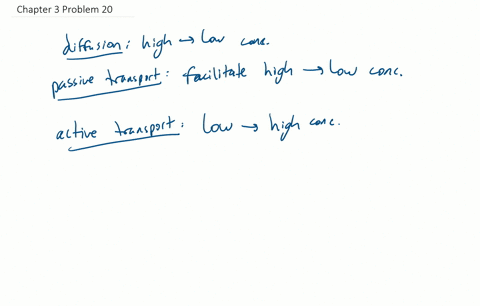 Chapter 3 Problem 20
diffusion: high → low conc.
passive transport: facilitate high → low conc.
active transport: low → high conc.